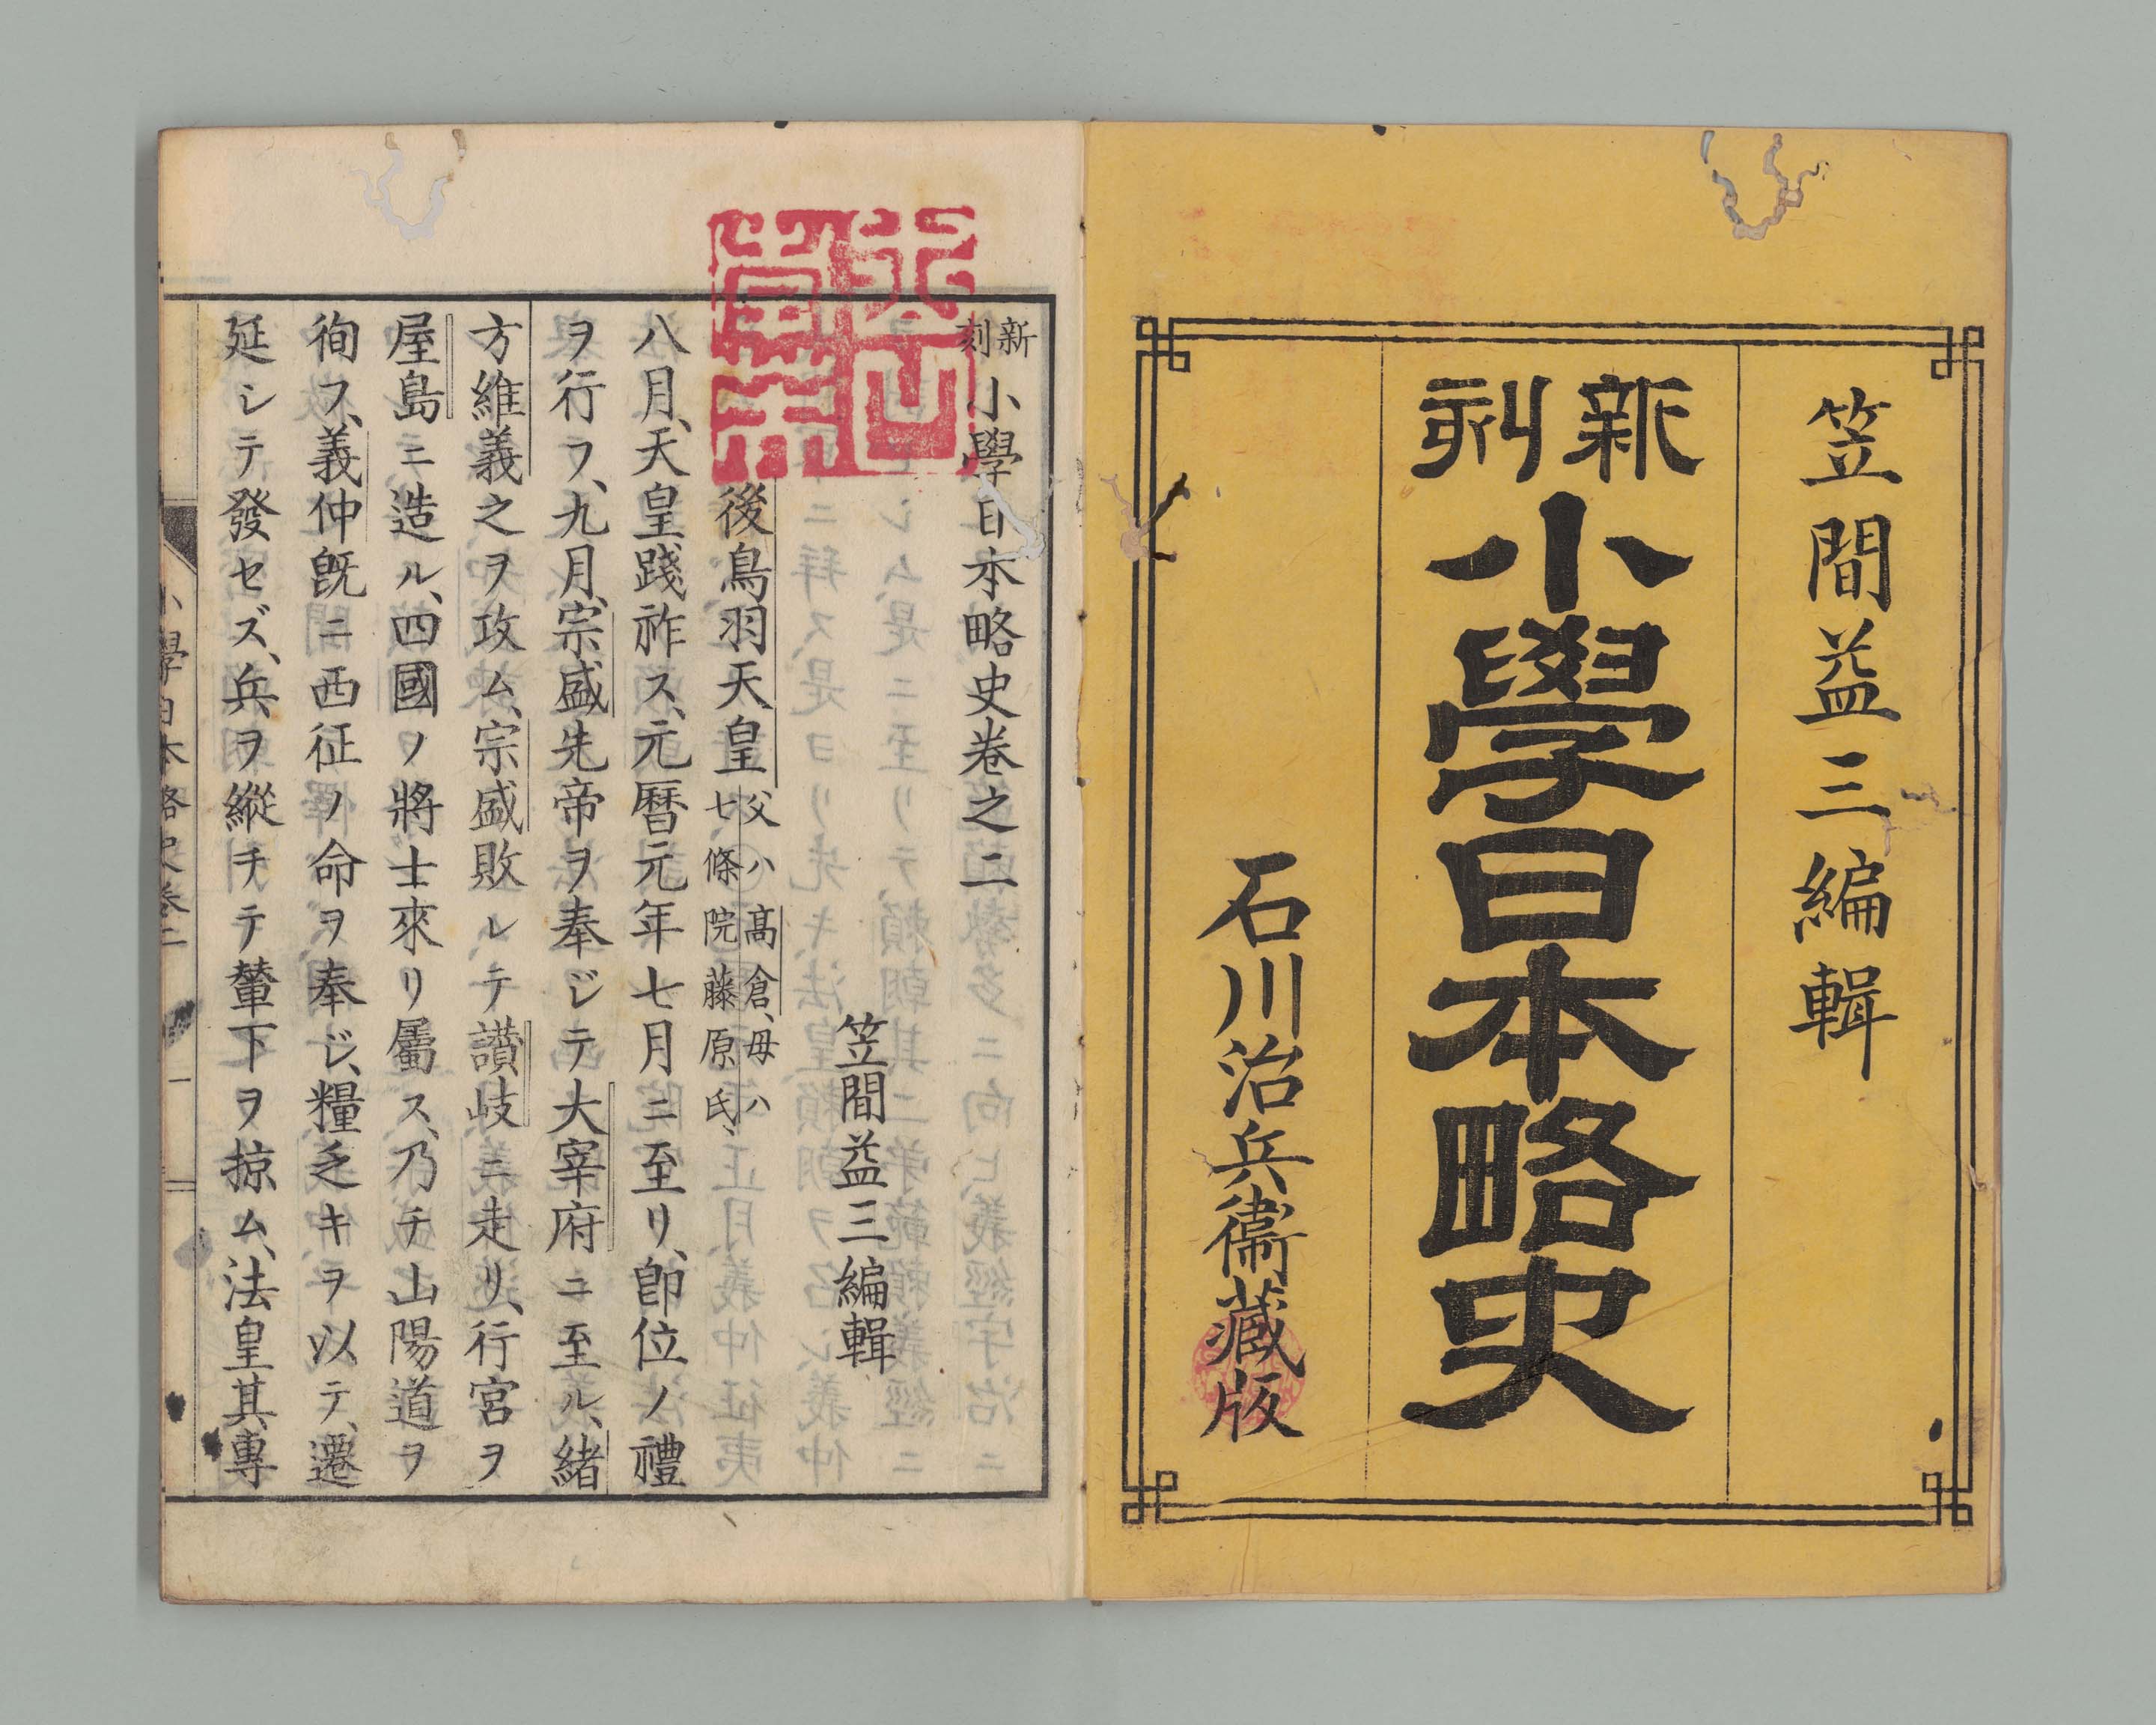 笠間益三編輯
新刻
小學日本略史
石川治兵衞藏版
新刻小學日本略史卷之二
笠間益三編輯
後鳥羽天皇父ハ高倉、母ハ七條院藤原氏、
八月、天皇踐祚ス、元曆元年七月ニ至リ、卽位ノ禮
ヲ行フ、九月、宗盛先帝ヲ奉ジテ大宰府ニ至ル、緖
方維義之ヲ攻ム、宗盛敗レテ讃岐ニ走リ、行宮ヲ
屋島ニ造ル、四國ノ將士來リ屬ス、乃チ山陽道ヲ
徇フ、義仲既ニ西征ノ命ヲ奉ジ、糧乏キヲ以テ、遷
延シテ發セズ、兵ヲ縱チテ輦下ヲ掠ム、法皇其專
小學日本略史卷二
一